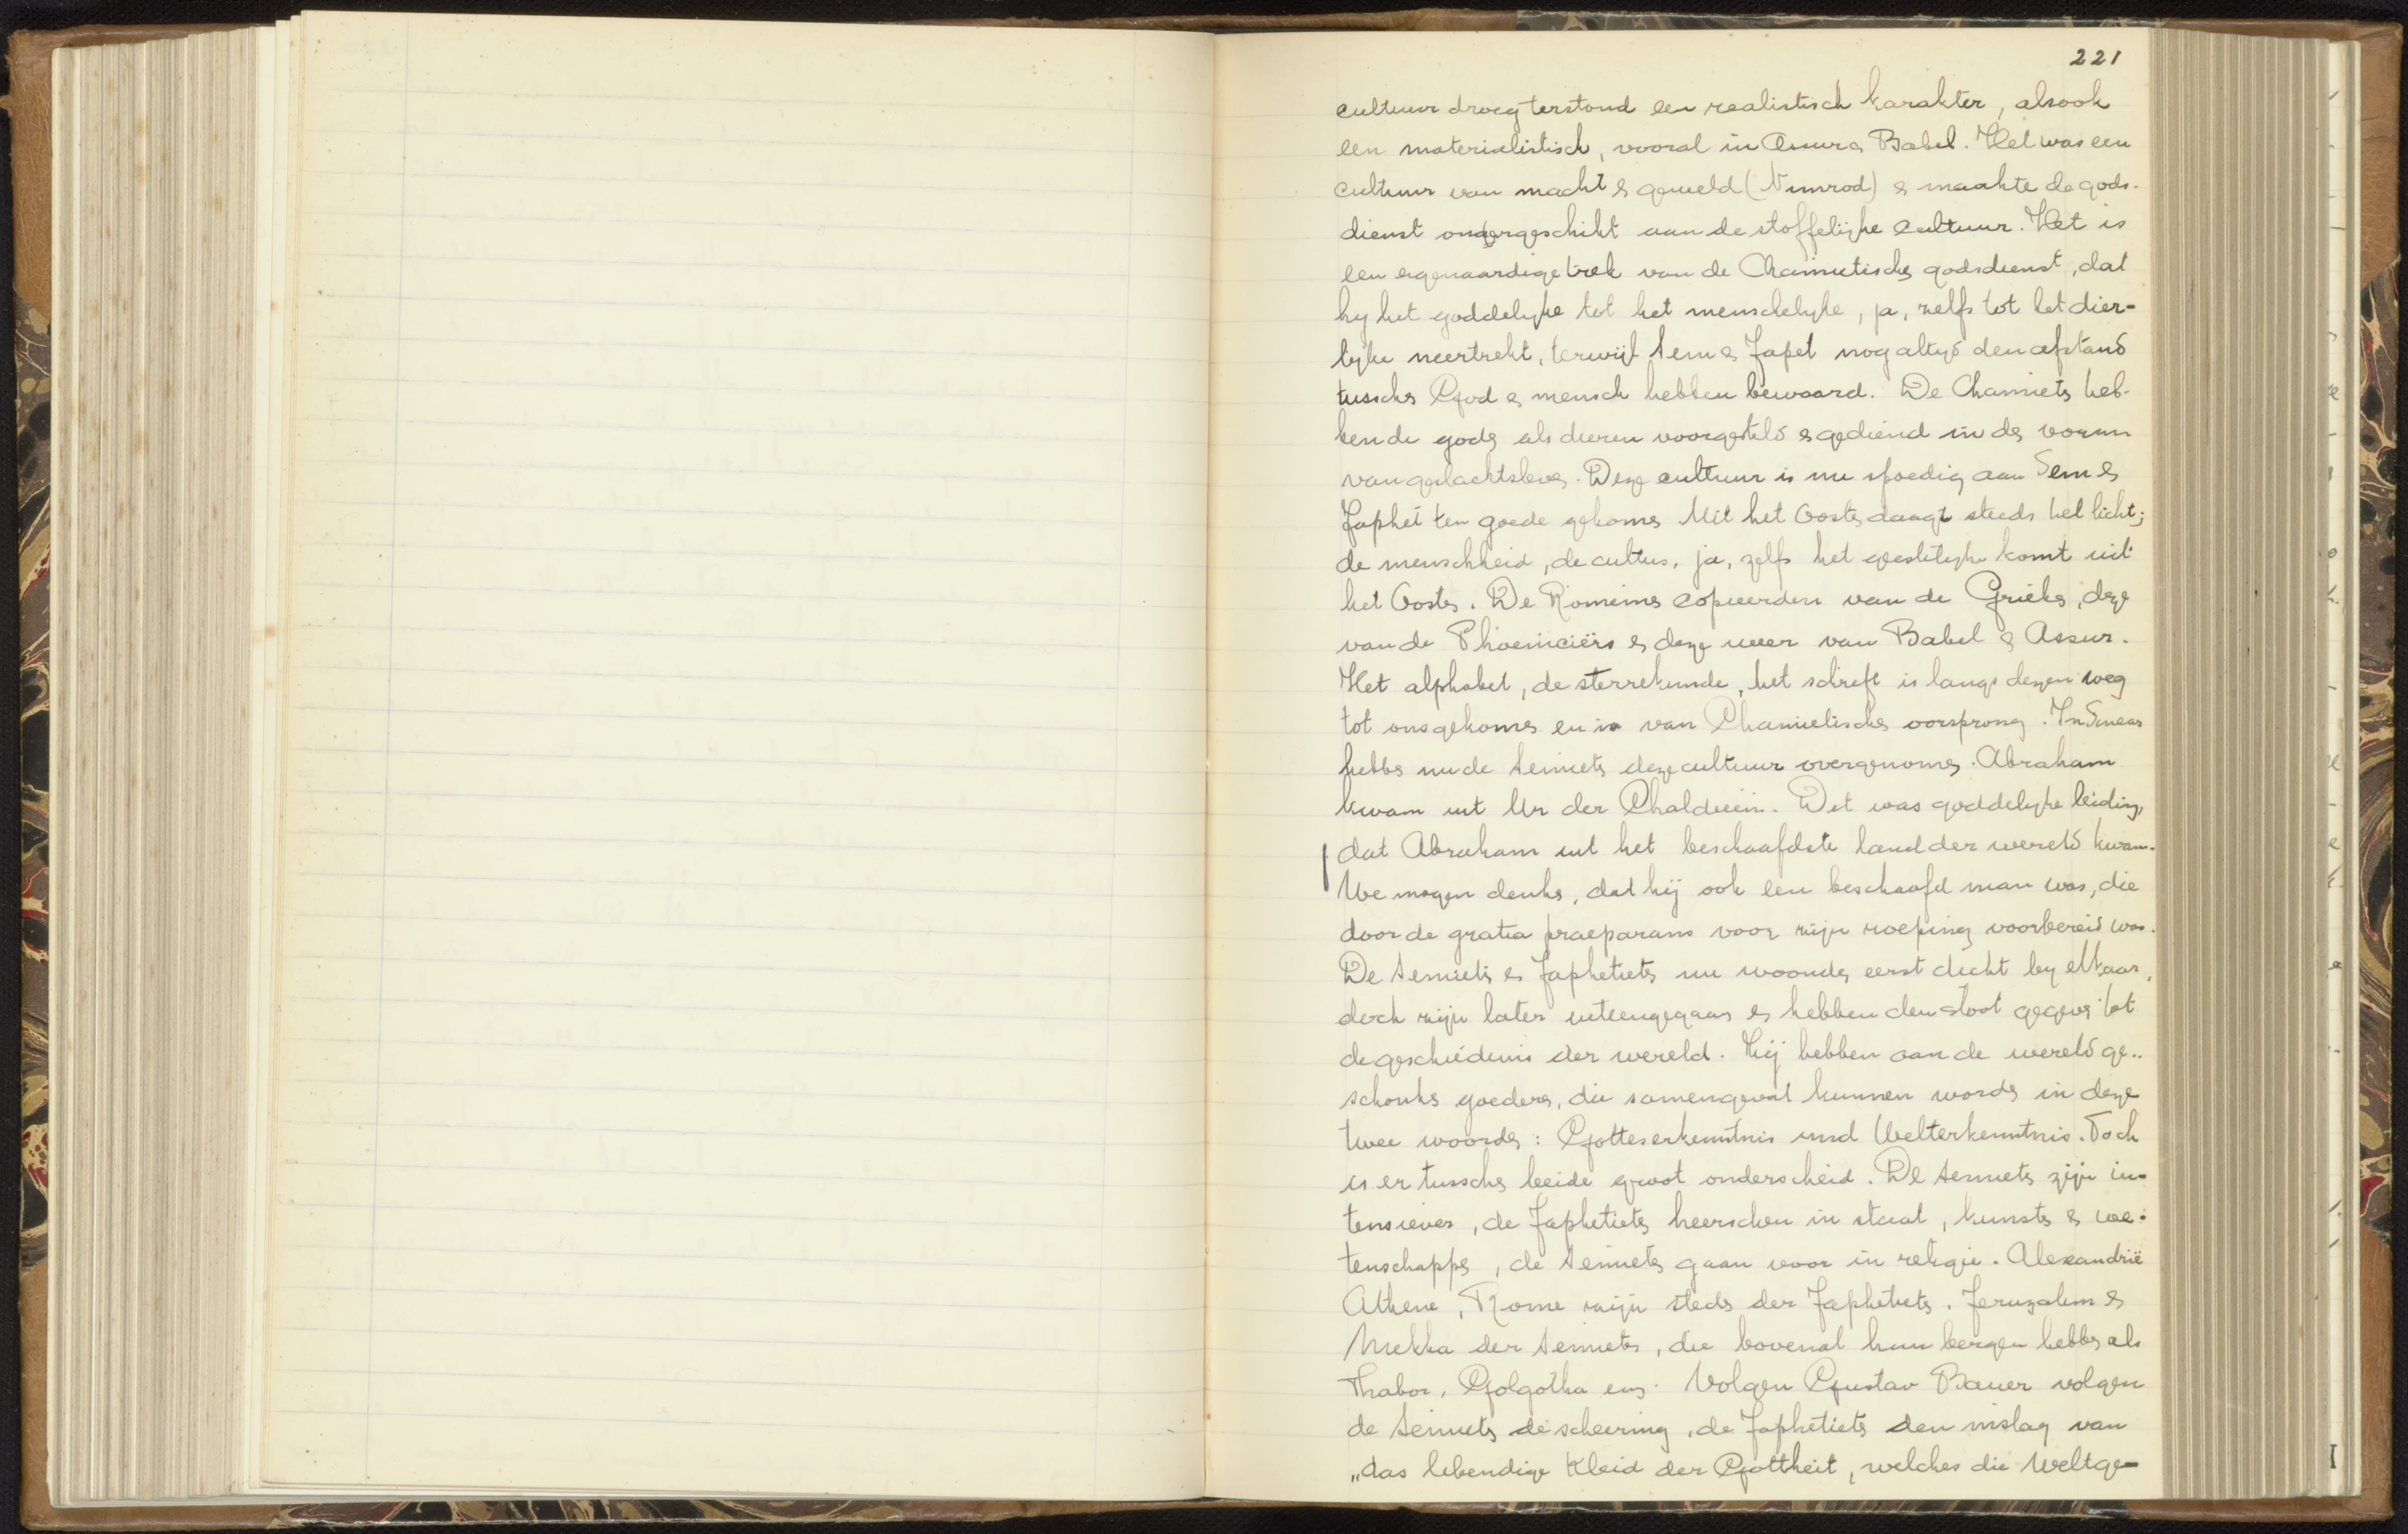 221
cultuur droeg terstond een realistisch karakter, alsook
een materialistisch, vooral in Assur & Babel. Het was een
cultuur van macht & geweld (Nimrod) & maakte de gods-
dienst ondergeschikt aan de stoffelijke cultuur. Het is
een eigenaardige trek van de Chamietische godsdienst, dat
hij het goddelijke tot het menschelijke, ja, zelfs tot het dier-
lijke neertrekt, terwijl Sem & Jafet nog altijd den afstand
tusschen God & mensch hebben bewaard. De Chamieten heb-
ben de goden als dieren voorgesteld & gediend in den vorm
van geslachtsleven. Deze cultuur is nu spoedig aan Sem &
Japhet ten goede gekomen. Uit het Oosten daagt steeds het licht;
de menschheid, de cultus, ja, zelfs het geestelijke komt uit
het Oosten. De Romeinen copieerden van de Grieken, deze
van de Phoeniciërs & deze weer van Babel & Assur.
Het alphabet, de sterrekunde, het schrift is langs dezen weg
tot ons gekomen en is van Chamietischen oorsprong. In Sinear
hebben nu de Semieten deze cultuur overgenomen. Abraham
kwam uit Ur der Chaldeeën. Het was goddelijke leiding,
dat Abraham uit het beschaafdste land der wereld kwam.
We mogen denken, dat hij ook een beschaafd man was, die
door de gratia praeparans voor zijn roeping voorbereid was.
De Semieten & Japhetieten nu woonden eerst dicht bij elkaar,
doch zijn later uiteengegaan & hebben den stoot gegeven tot
de geschiedenis der wereld. Zij hebben aan de wereld ge-
schonken goederen, die samengevat kunnen worden in deze
twee woorden: Gotteserkenntnis und Welterkenntnis. Toch
is er tusschen beide groot onderscheid. De Semieten zijn in-
tensiever, de Japhetieten heerschen in staat, kunsten & we-
tenschappen, de Semieten gaan voor in religie. Alexandrië
Athene, Rome zijn steden der Japhetieten. Jeruzalem &
Mekka der Semieten, die bovenal hun bergen hebben als
Thabor, Golgotha enz. Volgen Gustav Bauer volgen
de Semieten de scheering, de Japhetieten den inslag van
„das lebendige Kleid der Gottheit, welches die Weltge-